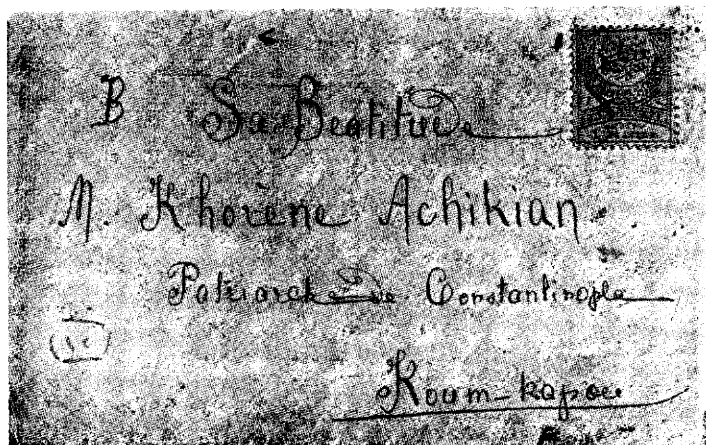 B Sa Beatitude
M. Khorène Achikian
Patriarche de Constantinople
Koum-kapou